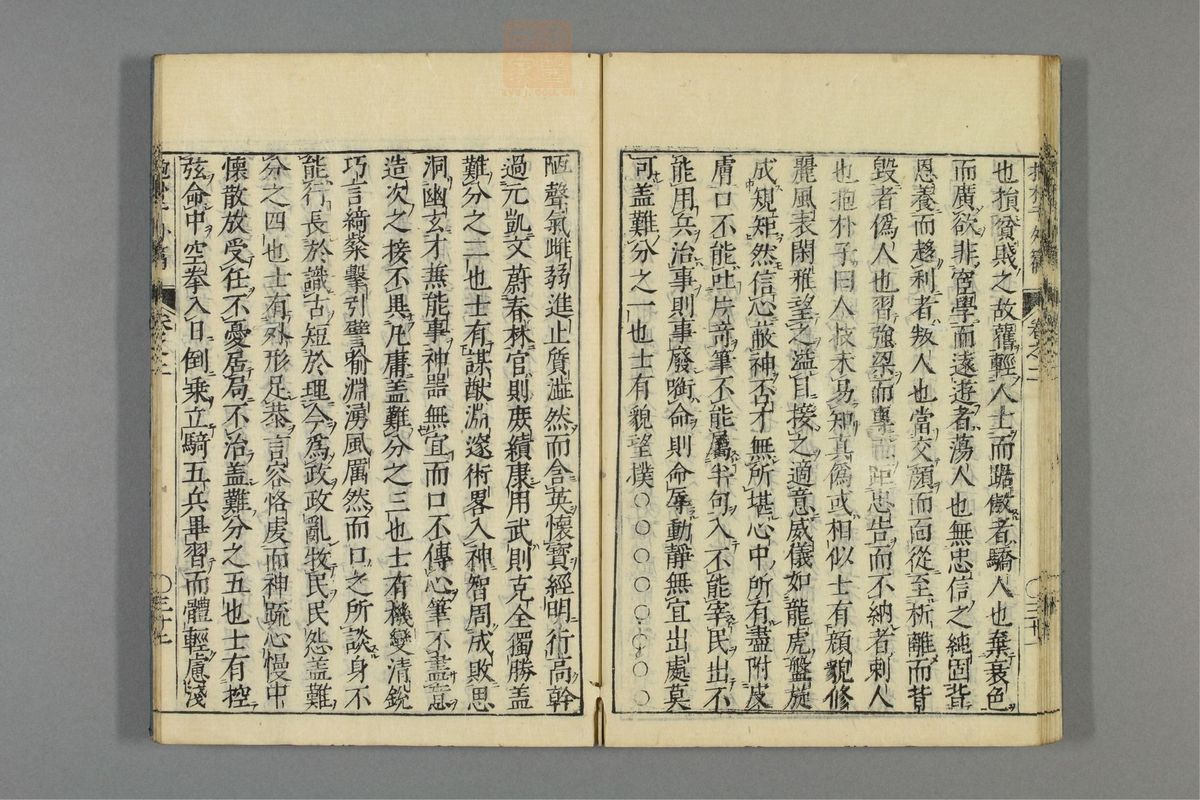 也損貧賤之故舊輕人士而踞傲者驕人也棄衰色
而廣欲非宦學而遠遊者蕩人也無忠信之純固背
恩養而趨利者叛人也當交顔而面從至析離而背
毀者偽人也習強梁而專己距忠告而不納者刺人
也抱朴子曰人技未易知真偽或相似士有顔貌修
麗風表閑雅望之溢目接之適意威儀如龍虎盤旋
成規矩然信心蔽神否才無所堪心中所有盡附皮
膚口不能吐片奇筆不能屬半句入不能宰民出不
能用兵治事則事廢啣命則命辱動靜無宜出處莫
可盖難分之一也士有貌望樸○○○○○○○
陋聲氣雌弱進止質澁然而含英懷寶經明行高幹
過元凱文蔚春林官則庻績康用武則克全獨勝盖
難分之二也士有謀猷淵邃術畧入神智周成敗思
洞幽玄才兼能事神器無宜而口不傳心筆不盡意
造次之接不異凡庸盖難分之三也士有機變清銳
巧言綺粲擊引譬喻淵湧風厲然而口之所談身不
能行長於識古短於理今爲政政亂牧民民怨盖難
分之四也士有外形足恭言容恪虔而神疏心慢中
懷散放受任不憂居局不治盖難分之五也士有控
弦命中空拳入日倒乗立騎五兵畢習而體輕慮淺